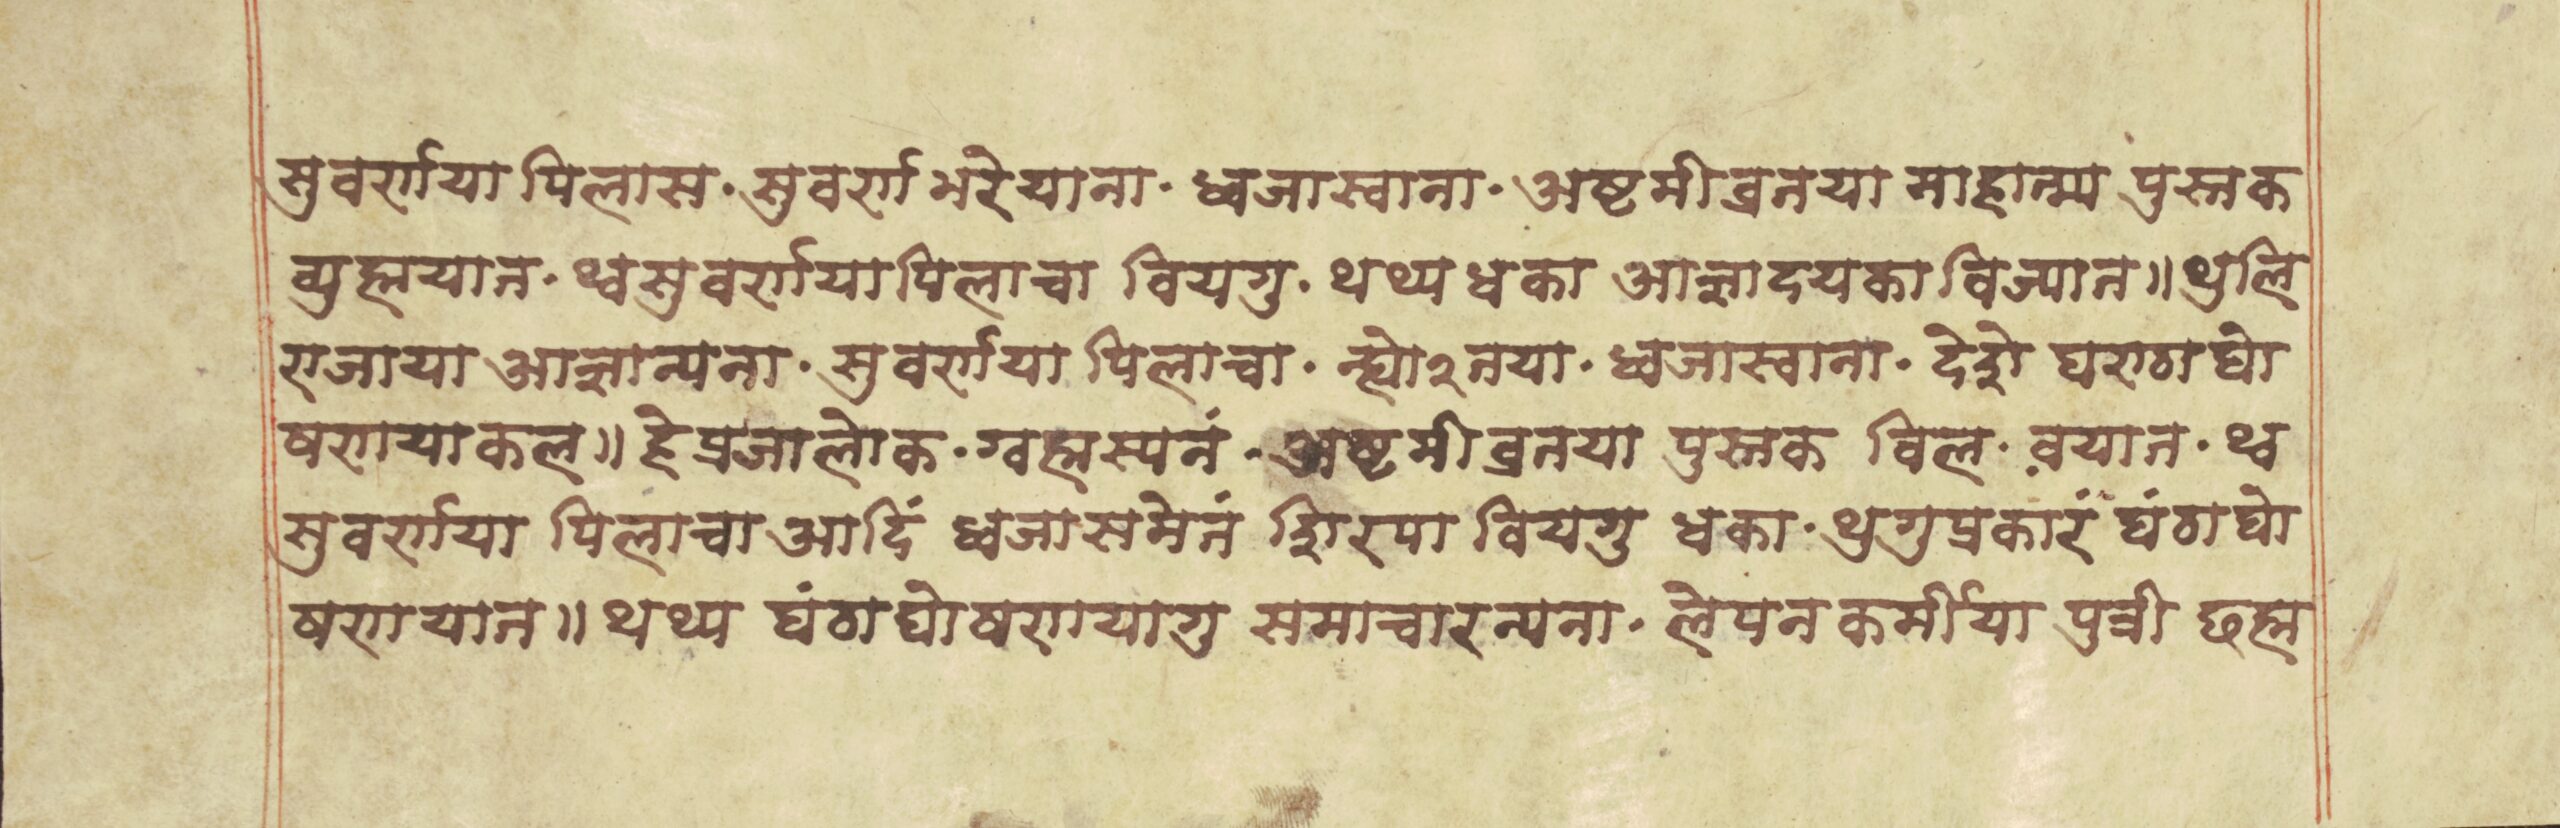 सुवर्णया पिलास· सुवर्ण भरेयाना· ध्वजास्वाना· अष्टमीव्रतया माहात्म्य पुस्तक
व्युह्मयात· थ्वसुवर्णयापिलाचा वियगु· थथ्यधका आज्ञादयकाविज्यात॥ थुलि
राजाया आज्ञान्यना· सुवर्णया पिलाचा· न्ह्यो२तया· ध्वजास्वाना· देशे घराठाघो
षरायाकल॥ हे प्रजालोक· ग्वह्मस्यनं· अष्टमीव्रतया पुस्तक विल· वयात· थ्व
सुवर्णया पिलाचा आदिं ध्वजासमेतं शिरपा वियगु धका· थुगुप्रकारं घंठाघो
षरायात॥ थथ्य घंठाघोषरायागु समाचारन्यना· लेपनकर्मीया पुत्री छह्म